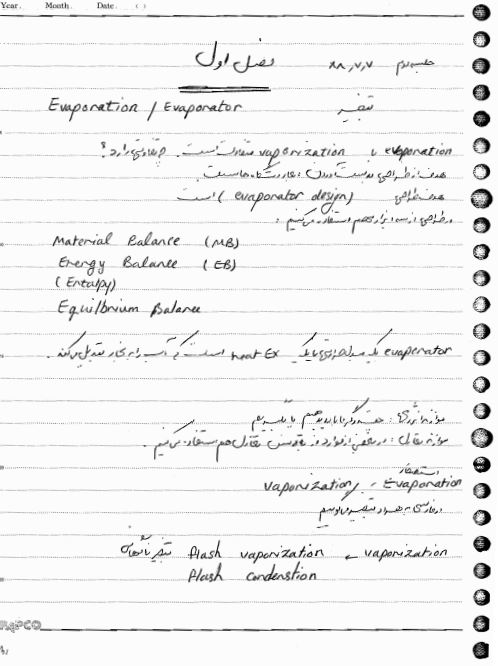 Year. Month. Date. ( )
فصل اول ۸۸,۷,۷ جلسه دوم
Evaporation / Evaporator تبخیر
evaporation با vaporization متفاوت است. چه تفاوتی دارد؟
هدف از طراحی بدست آوردن
هدف طراحی (evaporator design) است
در طراحی از سه ابزار مهم استفاده می‌کنیم :
Material Balance (MB)
Energy Balance (EB)
(Entalpy)
Equilbrium Balance
evaporator یک مبدل حرارتی یا یک heat Ex است که آب را به بخار تبدیل می‌کند.
موازنه انرژی : چقدر گرما باید بدهیم یا بگیریم
موازنه تعادل : در بعضی از موارد از تعادل هم استفاده می‌کنیم .
vaporization / Evaporation
در فارسی هر دو تبخیر می‌گوییم
vaporization flash vaporization تبخیر ناگهانی
flash condenstion
PAPCO